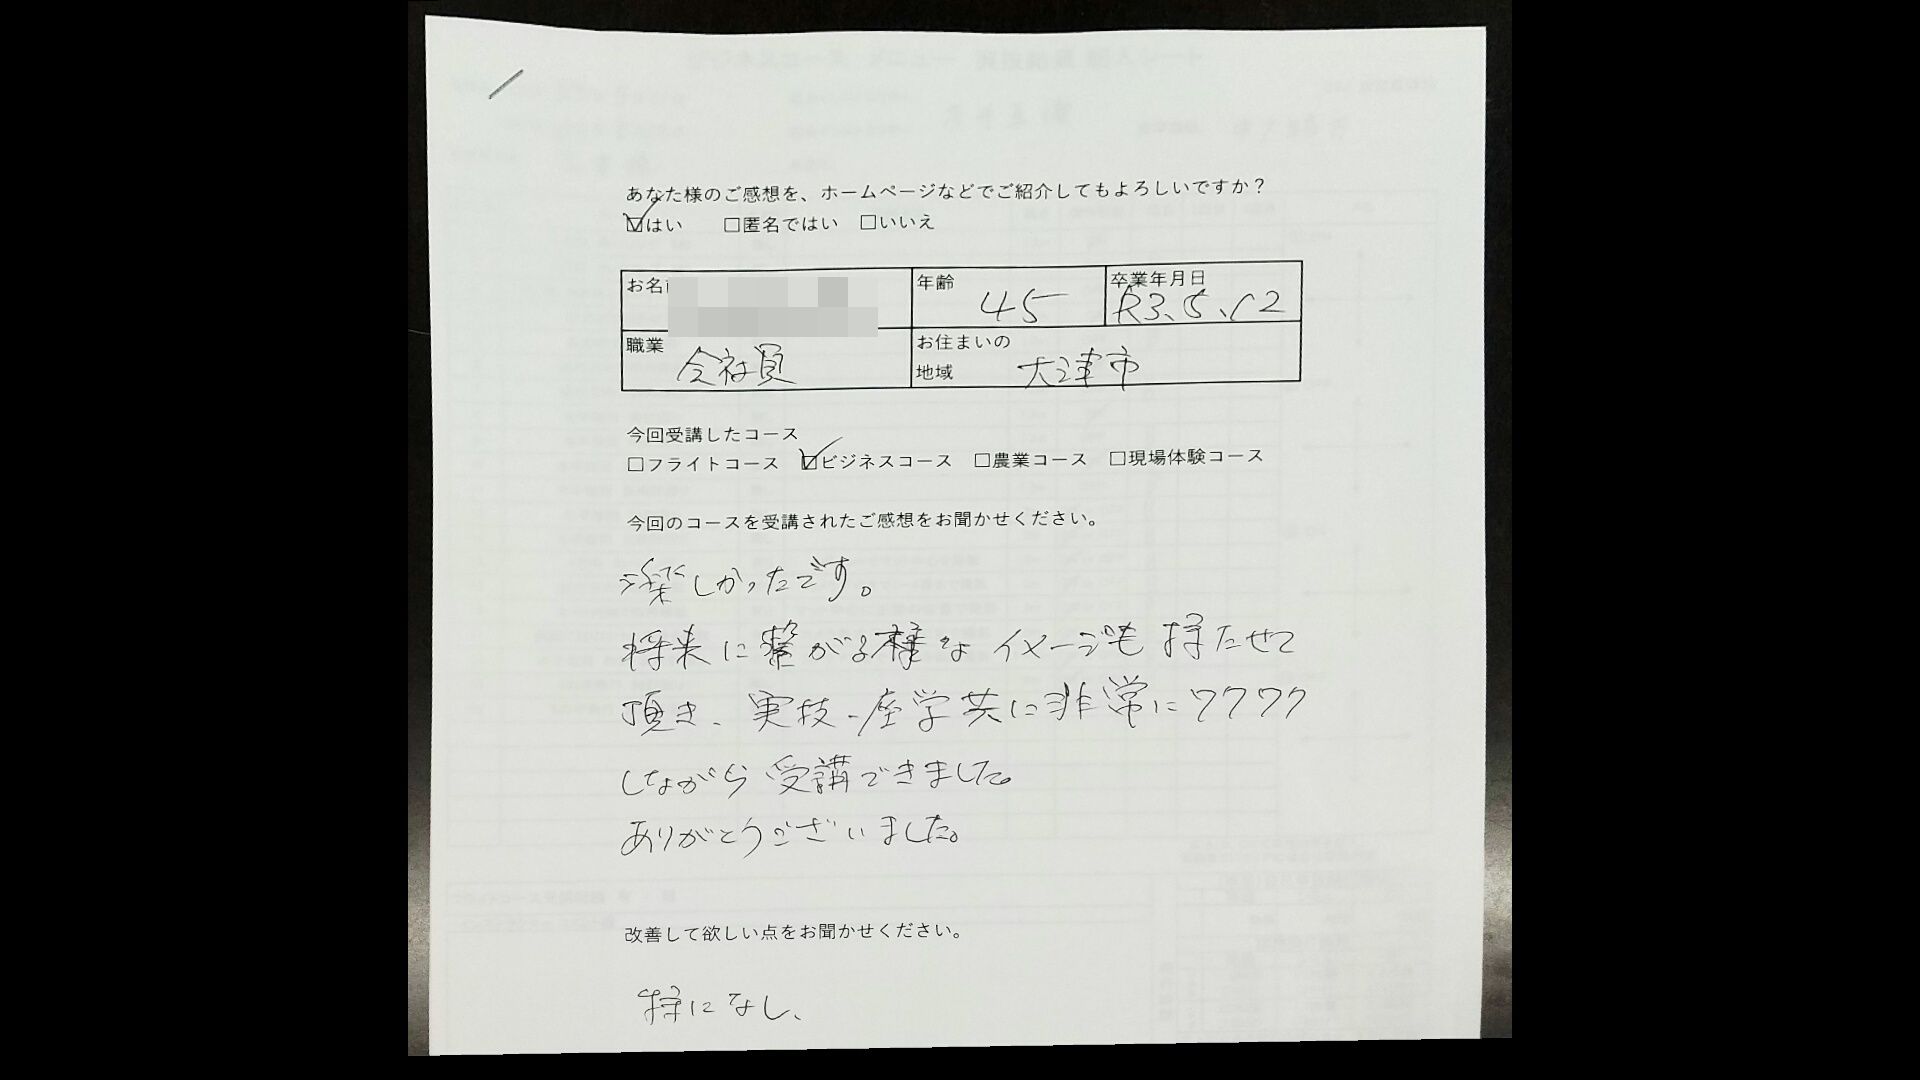 あなた様のご感想を、ホームページなどでご紹介してもよろしいですか？
☑はい □匿名ではい □いいえ
お名
年齢 45
卒業年月日 R3.5.12
職業 会社員
お住まいの地域 大津市
今回受講したコース
□フライトコース ☑ビジネスコース □農業コース □現場体験コース
今回のコースを受講されたご感想をお聞かせください。
楽しかったです。
将来に繋がる様なイメージも持たせて
頂き、実技・座学共に非常にワクワク
しながら受講できました。
ありがとうございました。
改善して欲しい点をお聞かせください。
特になし、